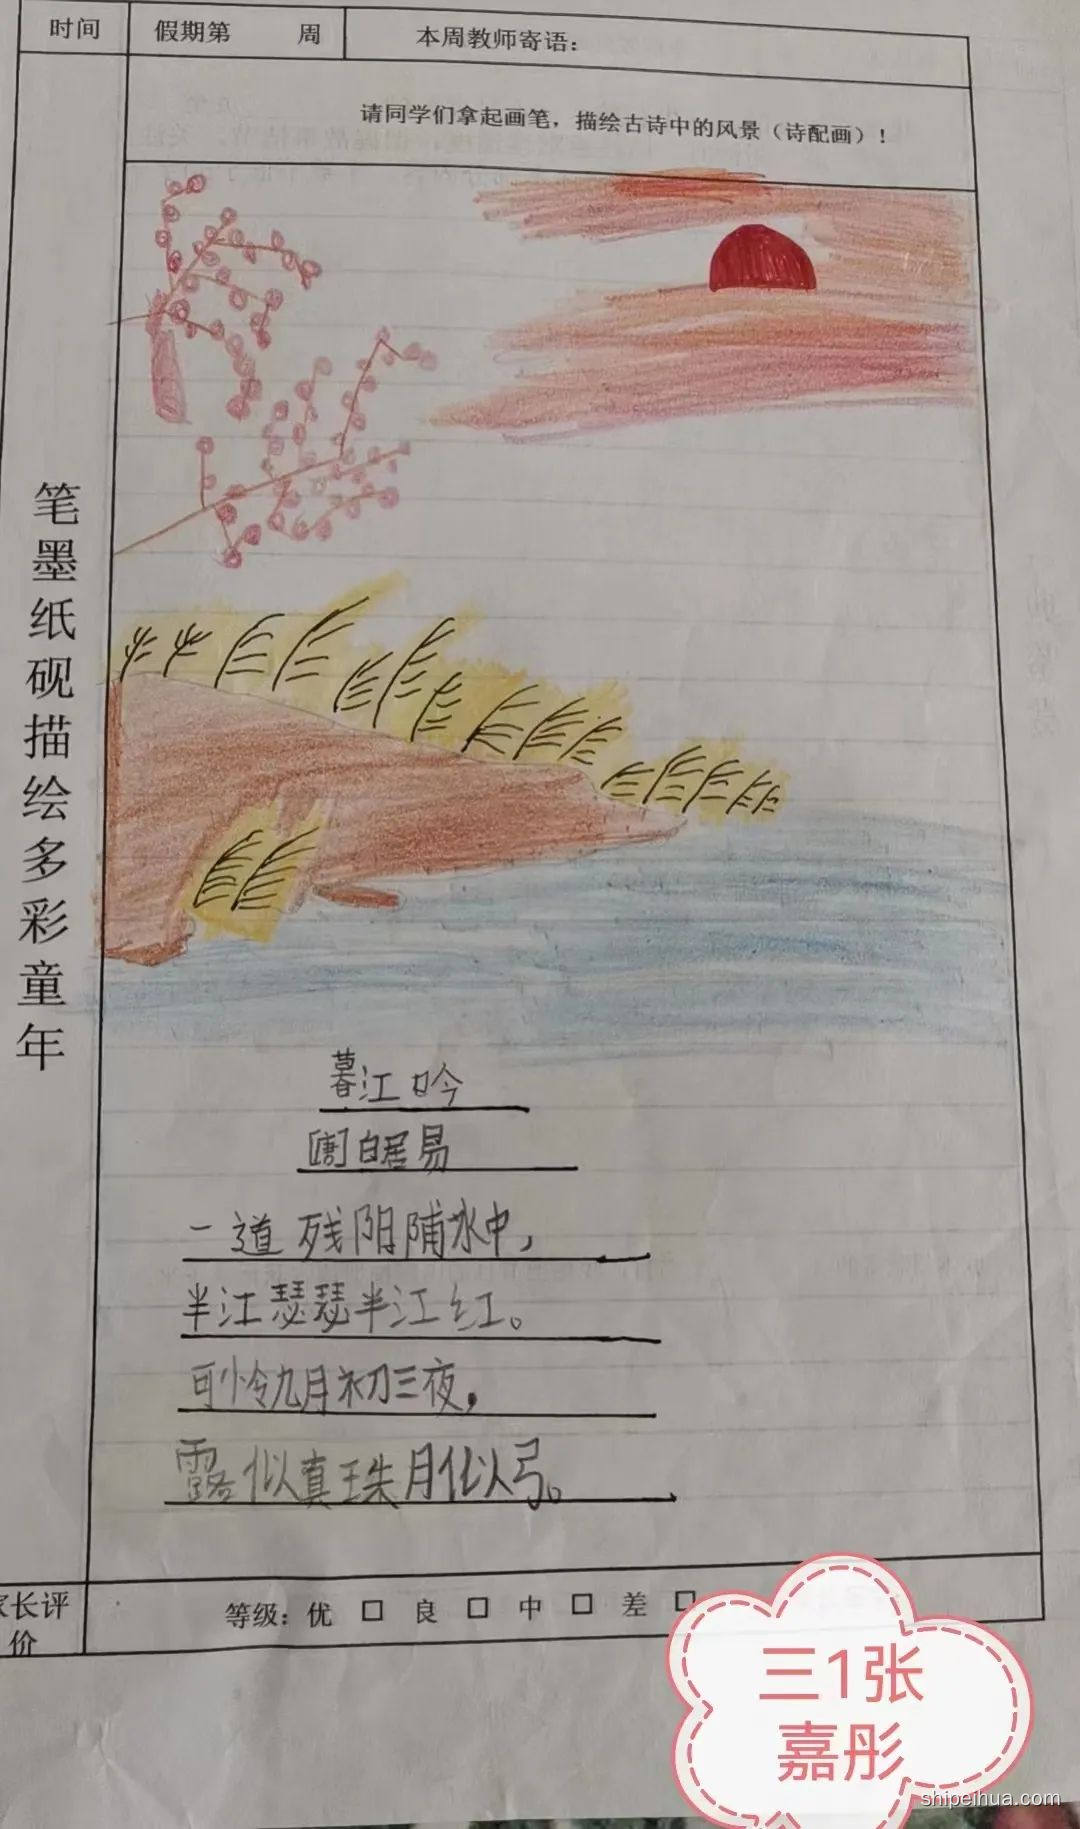 时间
假期第 周
本周教师寄语：
请同学们拿起画笔，描绘古诗中的风景（诗配画）！
笔墨纸砚描绘多彩童年
暮江吟
[唐]白居易
一道残阳陠水中，
半江瑟瑟半江红。
可怜九月初三夜，
露似真珠月似弓。
家长评
价
等级：优 □ 良 □ 中 □ 差 □
三1张
嘉彤
shipeihua.com